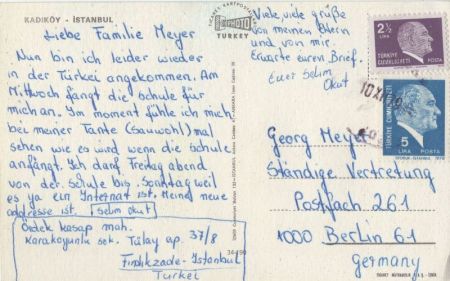 KADIKÖY - İSTANBUL
Liebe Familie Meyer
Nun bin ich leider wieder
in der Türkei angekommen. Am
Mittwoch fängt die Schule für
mich an. Im moment fühle ich mich
bei meiner Tante (sauwohl) mal
sehen wie es wird wenn die schule
anfängt. Ich darf Freitag abend
von der Schule bis Sonntag weil
es ya ein Internat ist. Meine neue
addresse ist. Selim Okut
Ördek kasap mah.
Karakoyunlu sok. Tülay ap. 37/8
Fındıkzade-Istanbul
Türkei
Viele viele grüße
von meinen Eltern
und von mir.
Erwarte euren Brief.
Euer Selim
Okut
TURKEY
2½
LIRA POSTA
TÜRKİYE
CUMHURİYETİ
TÜRKİYE CUMHURİYETİ
5
LIRA POSTA
Georg Meyer
Ständige Vertretung
Postfach 261
1000 Berlin 61
Germany